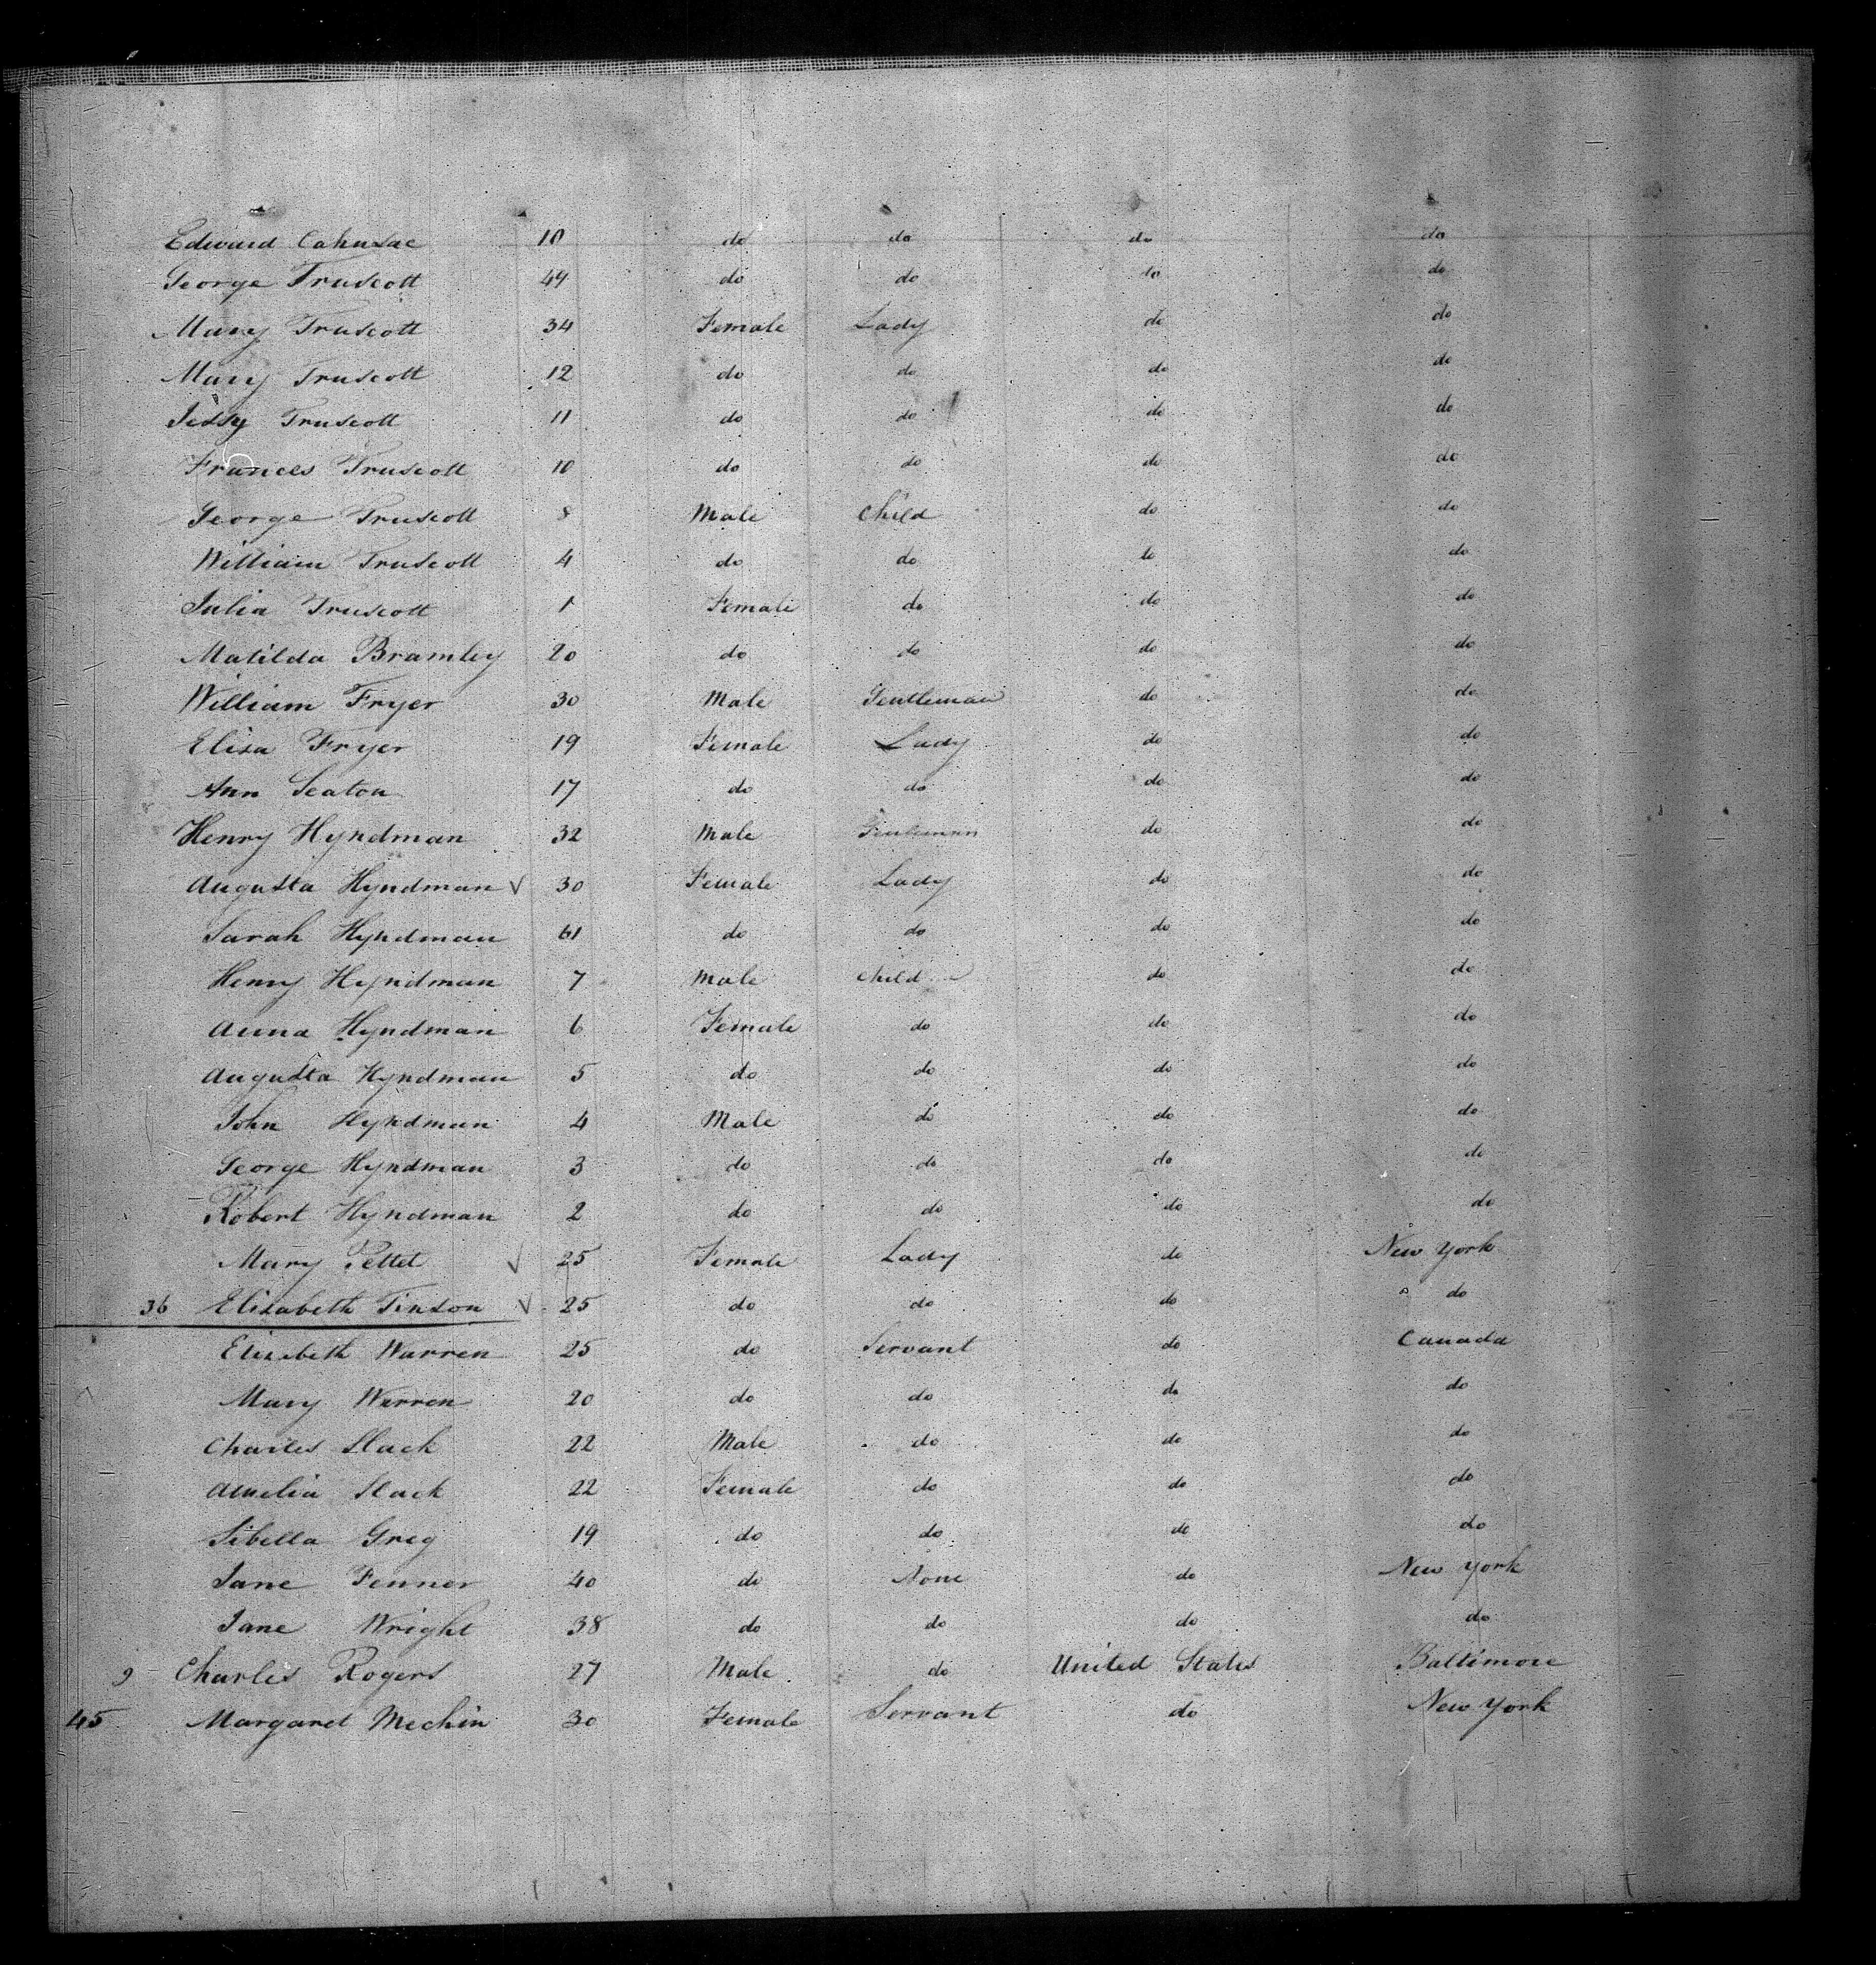 Edward Cahusac 10 do do do do
George Truscott 44 do do do do
Mary Truscott 34 Female Lady do do
Mary Truscott 12 do do do do
Jessy Truscott 11 do do do do
Frances Truscott 10 do do do do
George Truscott 8 Male Child do do
William Truscott 4 do do do do
Julia Truscott 1 Female do do do
Matilda Bramley 20 do do do do
William Fryer 30 Male Gentleman do do
Eliza Fryer 19 Female Lady do do
Ann Seaton 17 do do do do
Henry Hyndman 32 Male Gentleman do do
Augusta Hyndman √ 30 Female Lady do do
Sarah Hyndman 61 do do do do
Henry Hyndman 7 Male Child do do
Anna Hyndman 6 Female do do do
Augusta Hyndman 5 do do do do
John Hyndman 4 Male do do do
George Hyndman 3 do do do do
Robert Hyndman 2 do do do do
Mary Pettet √ 25 Female Lady do New York
36 Elizabeth Tinson √ 25 do do do do
Elizabeth Warren 25 do Servant do Canada
Mary Warren 20 do do do do
Charles Slack 22 Male do do do
Amelia Slack 22 Female do do do
Sibella Greg 19 do do do do
Jane Fenner 40 do None do New York
Jane Wright 38 do do do do
9 Charles Rogers 27 Male do United States Baltimore
45 Margaret Mechin 30 Female Servant do New York